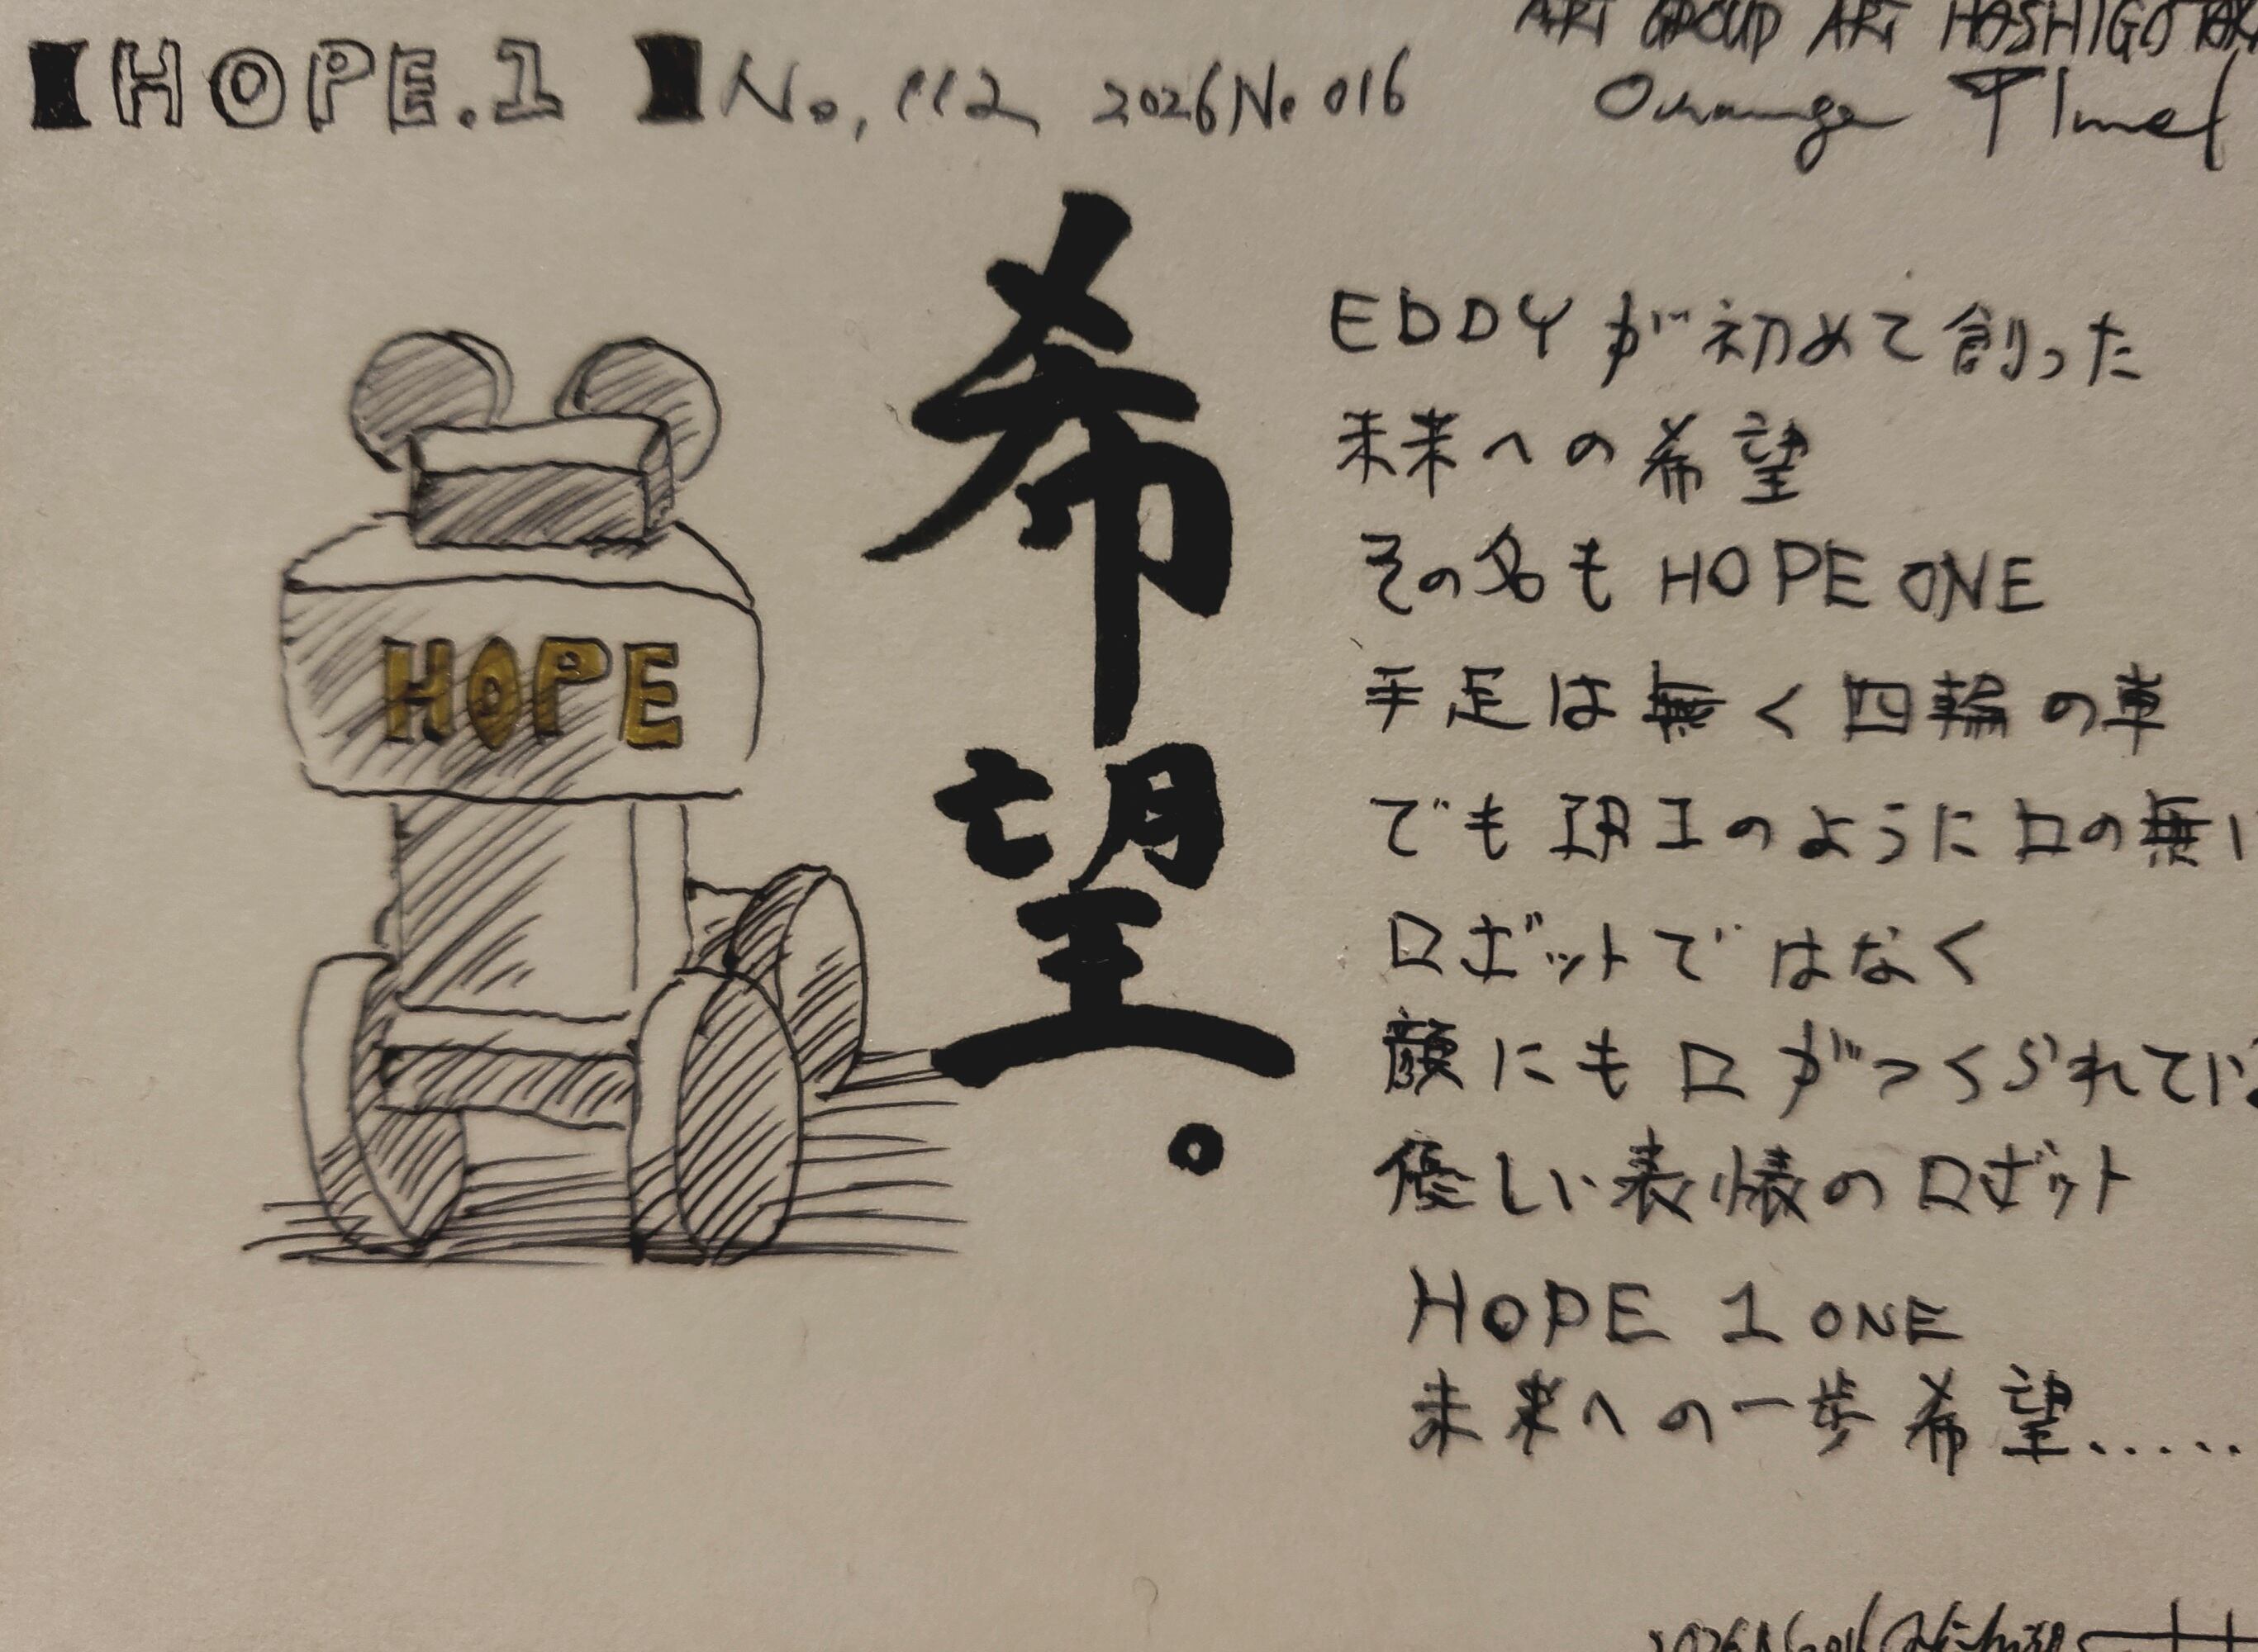 【HOPE.1 】No, 112 2026No 016
ART GROUP ART HOSHIGOTAK
Orange Time
希望。
HOPE
EDDYが初めて創った
未来への希望
その名もHOPE ONE
手足は無く四輪の車
でも IRIのように口の無い
ロボットではなく
顔にも口がつくられている
優しい表情のロボット
HOPE 1 ONE
未来への一歩希望.....
2026No016